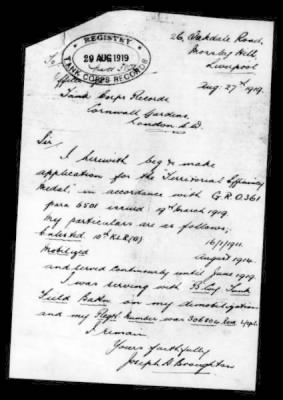 REGISTRY
29 AUG 1919
TANK CORPS RECORDS
26, Oakdale Road,
Mossley Hill,
Liverpool
Aug. 27th 1919.
To
Tank Corps Records
Cornwall Gardens,
London S.W.
Sir,
I herewith beg to make
application for the Territorial Efficiency
Medal, in accordance with G.R.O. 361
para 6501 issued 19th March 1919.
My particulars are as follows;
Enlisted 10th K.L.R.(S) 16/1/1911.
Mobilized August 1914.
and served continuously until June 1919.
I was serving with B Coy Tank
Field Battn on my demobilization
and my Regtl Number was 306804
I remain
Yours faithfully
Joseph A Broughton